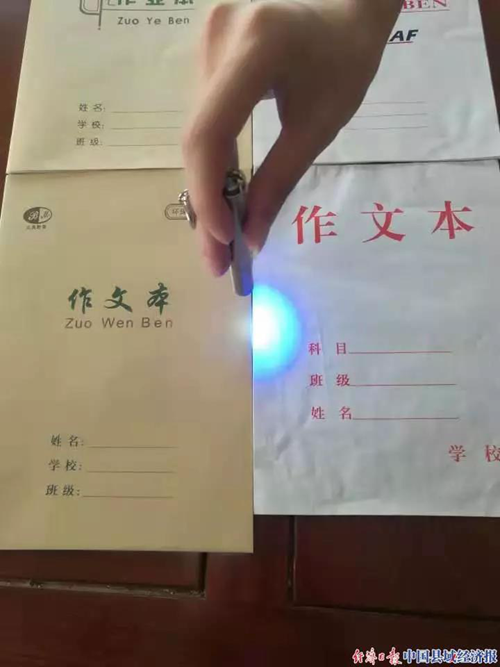 作业本
Zuo Ye Ben
姓名:
学校:
班级:
BEN
AF
作文本
Zuo Wen Ben
姓名:
学校:
班级:
作文本
科目
班级
姓名
学校
经济日报 中国县域经济报